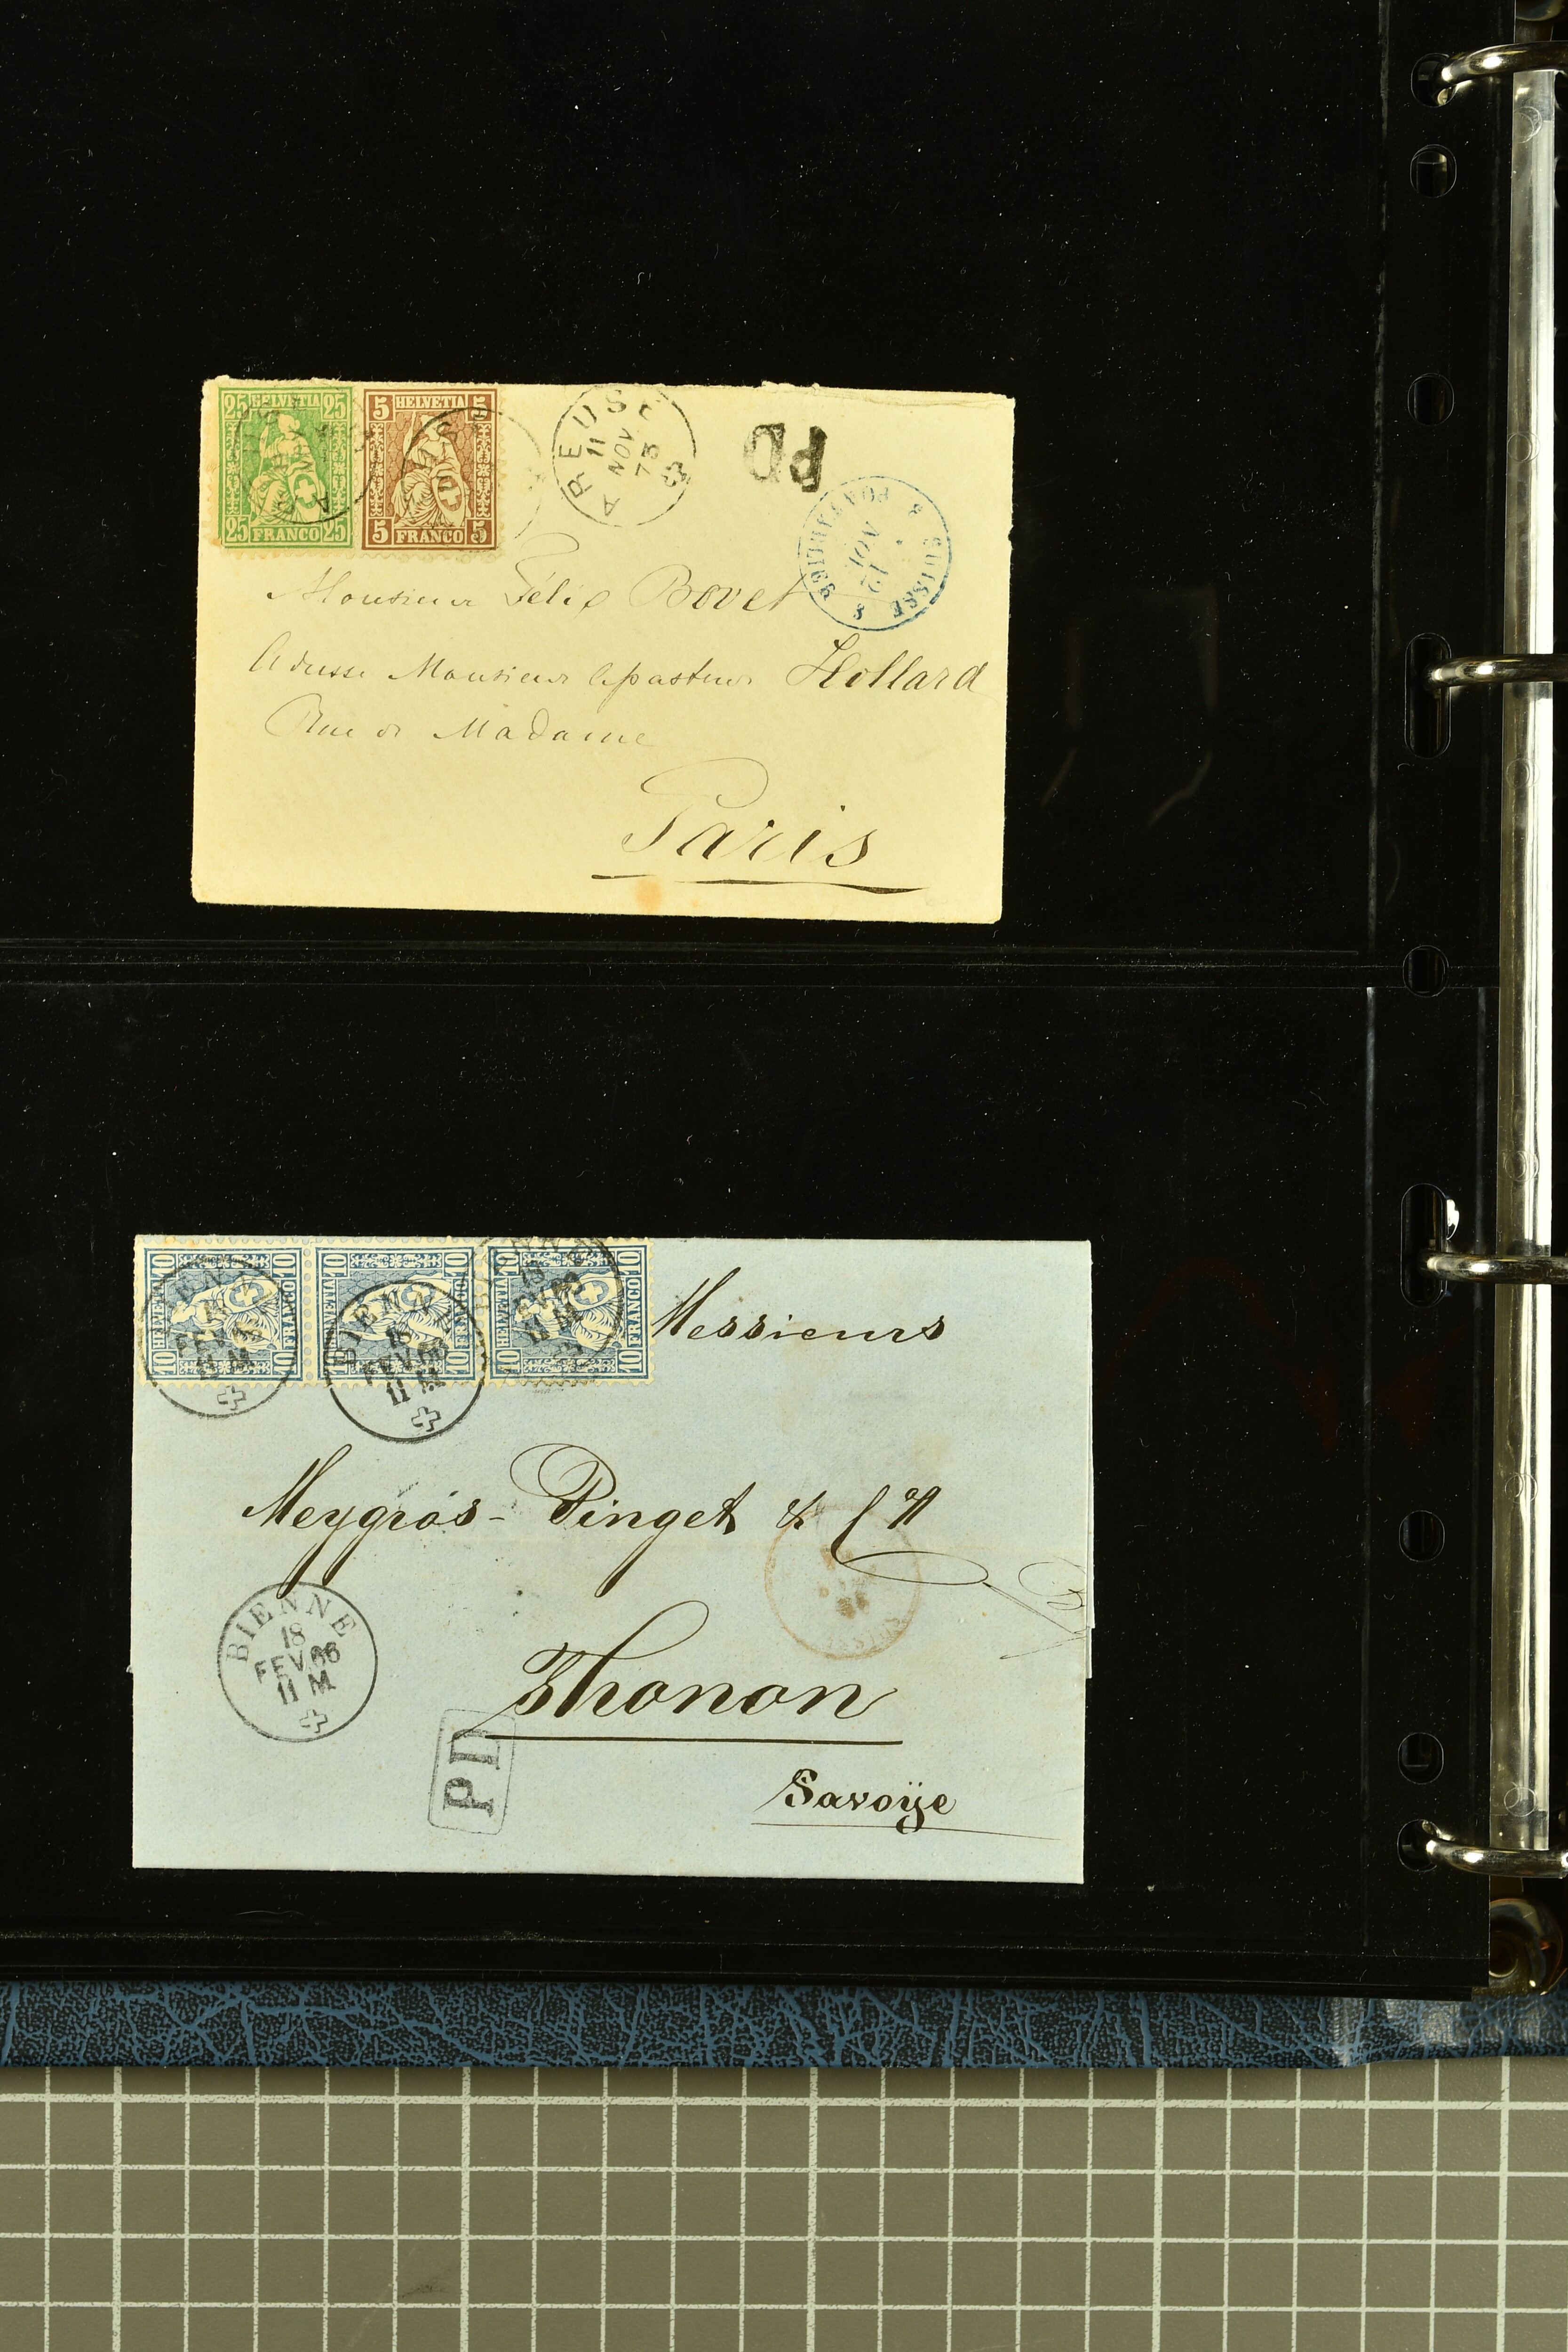 25 HELVETIA 25
25 FRANCO 25
5 HELVETIA 5
5 FRANCO 5
AREUSE
11
NOV
73
PD
SUISSE
PONTARLIER
12
NOV
Monsieur Félix Bovet
Adresse Monsieur le pasteur Hollard
Rue de Madame
Paris
10 HELVETIA 10
10 FRANCO 10
10 HELVETIA 10
10 FRANCO 10
10 HELVETIA 10
10 FRANCO 10
BIENNE
18
11 M
BIENNE
18
11 M
Messieurs
Meygros-Pinget &
Thonon
Savoÿe
BIENNE
18
FEV 66
11 M
PD